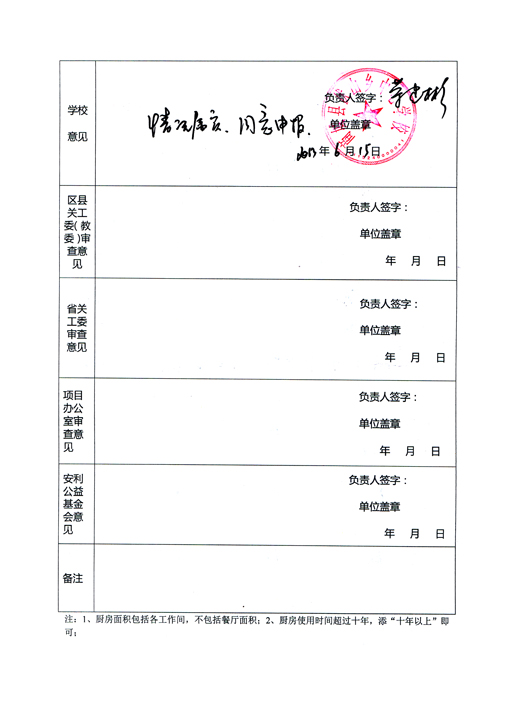 学校
意见
情况属实、同意申报.
负责人签字：
单位盖章
2013年6月15日
区县
关工
委（教
委）审
查意
见
负责人签字：
单位盖章
年 月 日
省关
工委
审查
意见
负责人签字：
单位盖章
年 月 日
项目
办公
室审
查意
见
负责人签字：
单位盖章
年 月 日
安利
公益
基金
会意
见
负责人签字：
单位盖章
年 月 日
备注
注：1、厨房面积包括各工作间，不包括餐厅面积；2、厨房使用时间超过十年，添“十年以上”即
可；